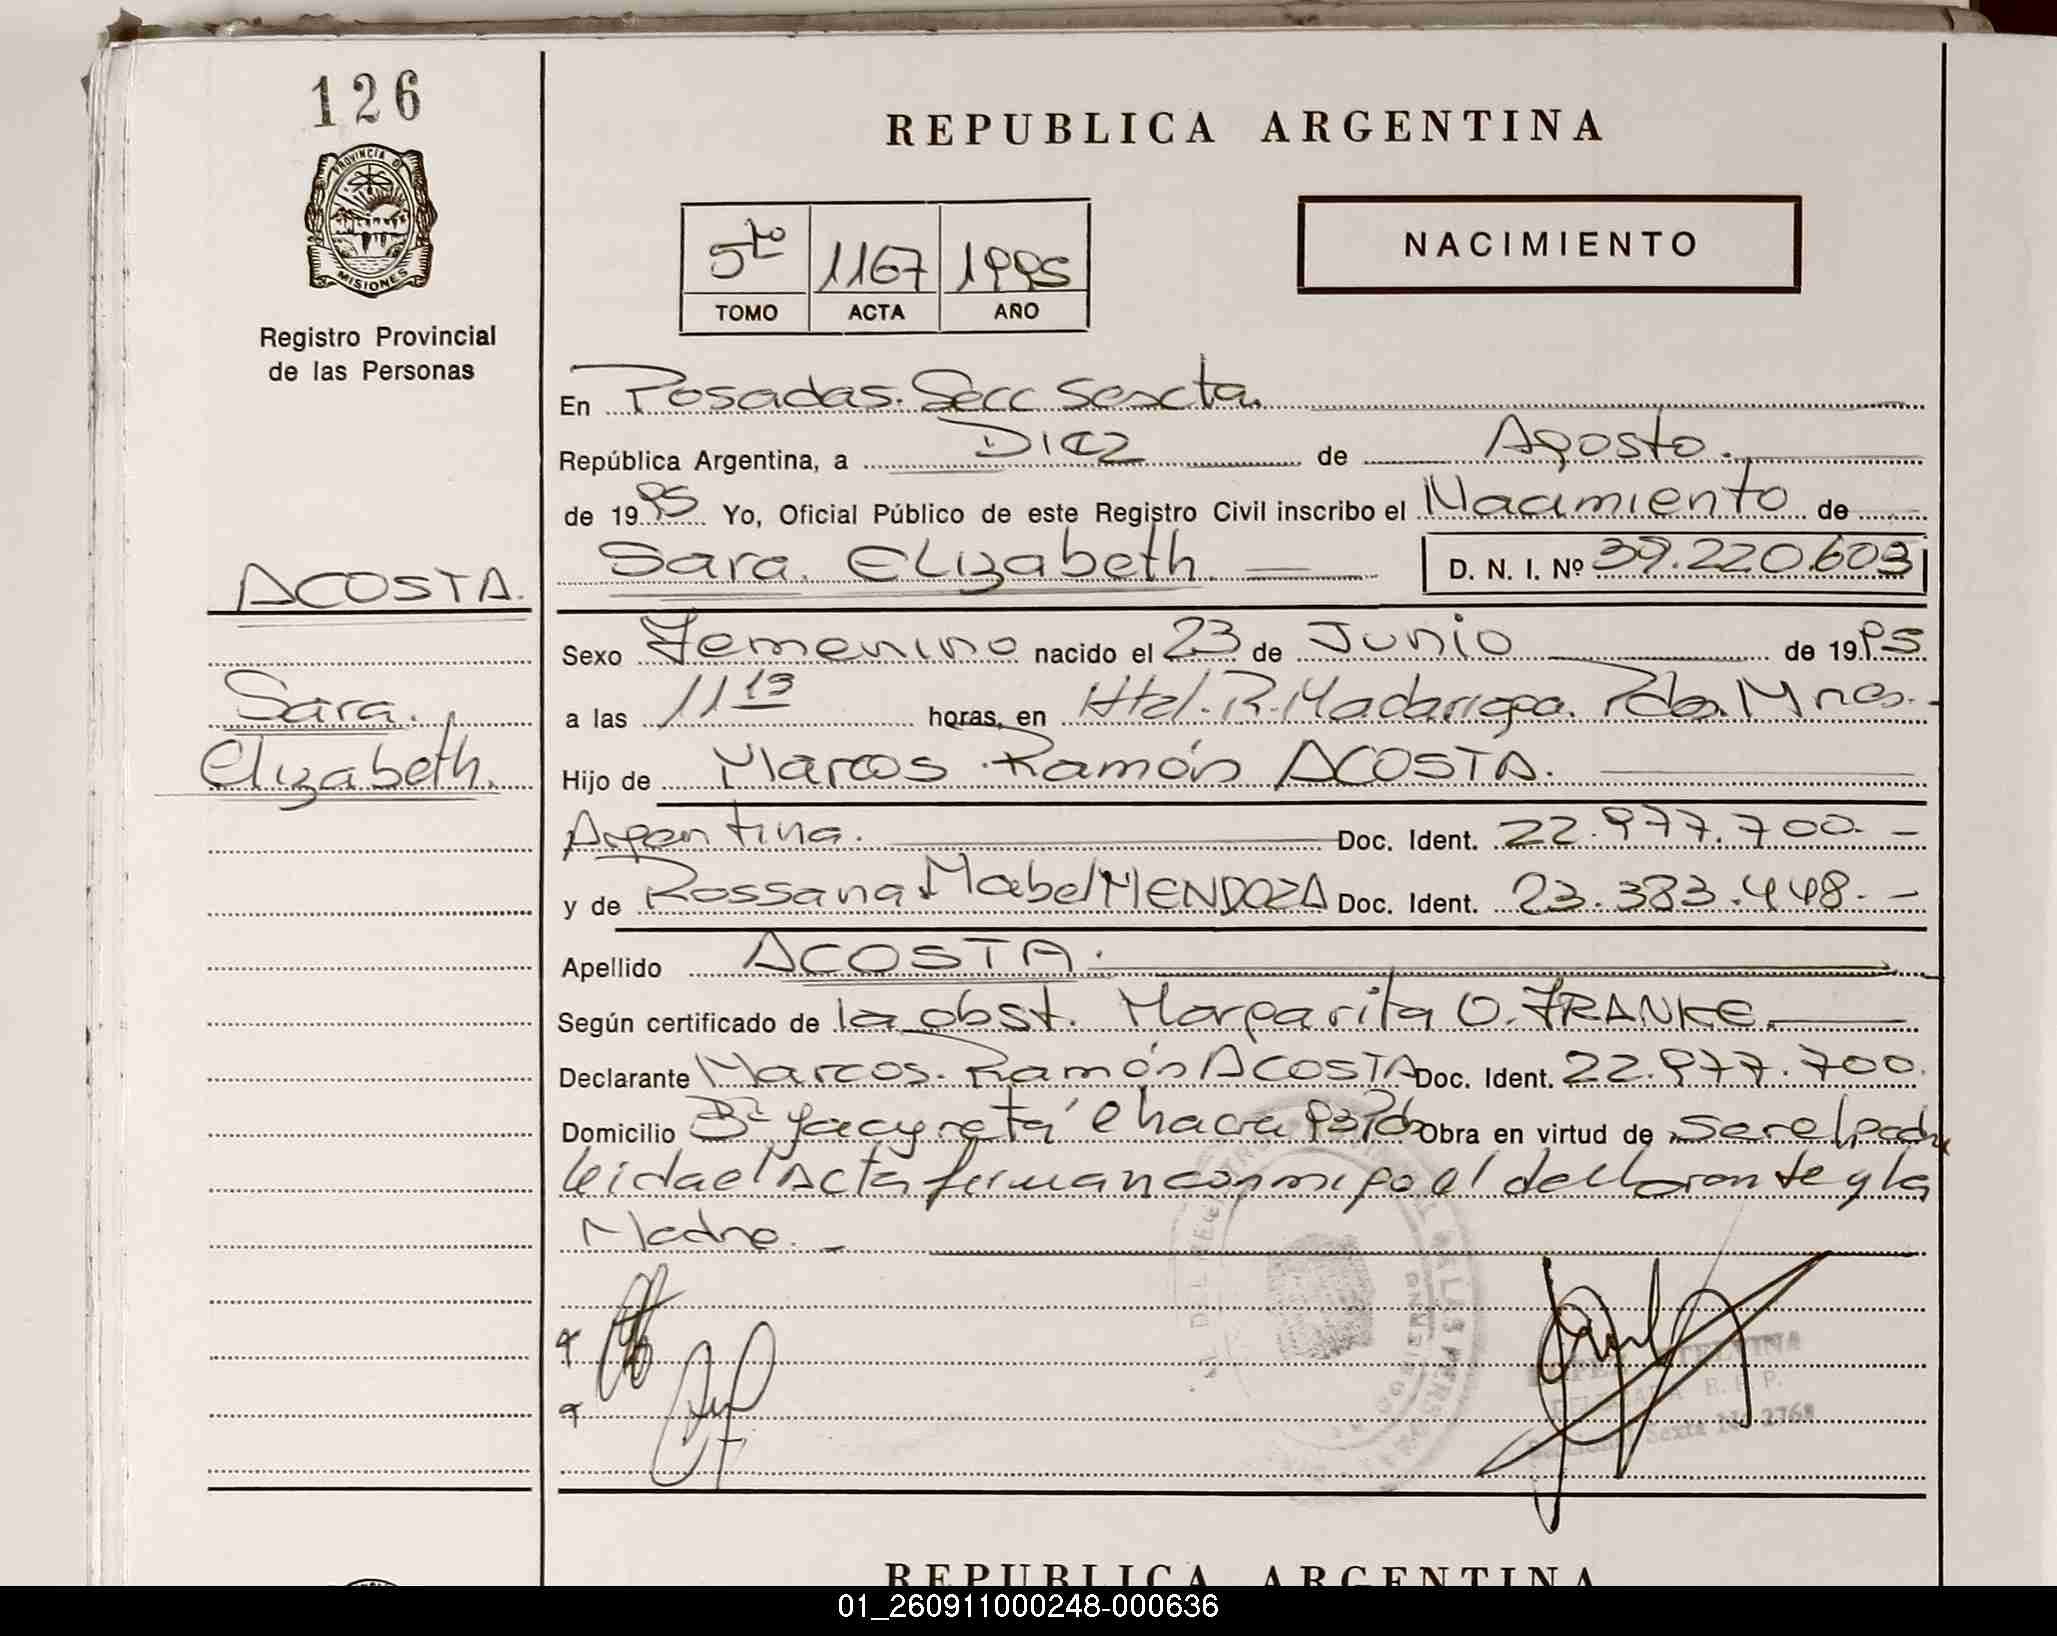 126
PROVINCIA DE
MISIONES
Registro Provincial
de las Personas
REPUBLICA ARGENTINA
5to 1167 1995
TOMO ACTA AÑO
NACIMIENTO
En Posadas. Secc Sexcta.
República Argentina, a Diez de Agosto.
de 1995 Yo, Oficial Público de este Registro Civil inscribo el Nacimiento de
Sara. Elizabeth. D. N. I. Nº 39.220.603
ACOSTA.
Sara.
Elizabeth.
Sexo Femenino nacido el 23 de Junio de 1995
a las 11 horas, en Htal. R. Madariaga. Pdas. Mnes.-
Hijo de Marcos Ramón ACOSTA.
Argentina. Doc. Ident. 22.977.700.-
y de Rossana Mabel MENDOZA Doc. Ident. 23.383.448.-
Apellido ACOSTA.
Según certificado de la obst. Margarita O. FRANKE.
Declarante Marcos. Ramón ACOSTA Doc. Ident. 22.977.700.
Domicilio Bº Yacyreta' Chacra Obra en virtud de ser el padre
leida el Acta firman conmigo el declarante y la
Madre.-
Sexta
REPUBLICA ARGENTINA
01_260911000248-000636